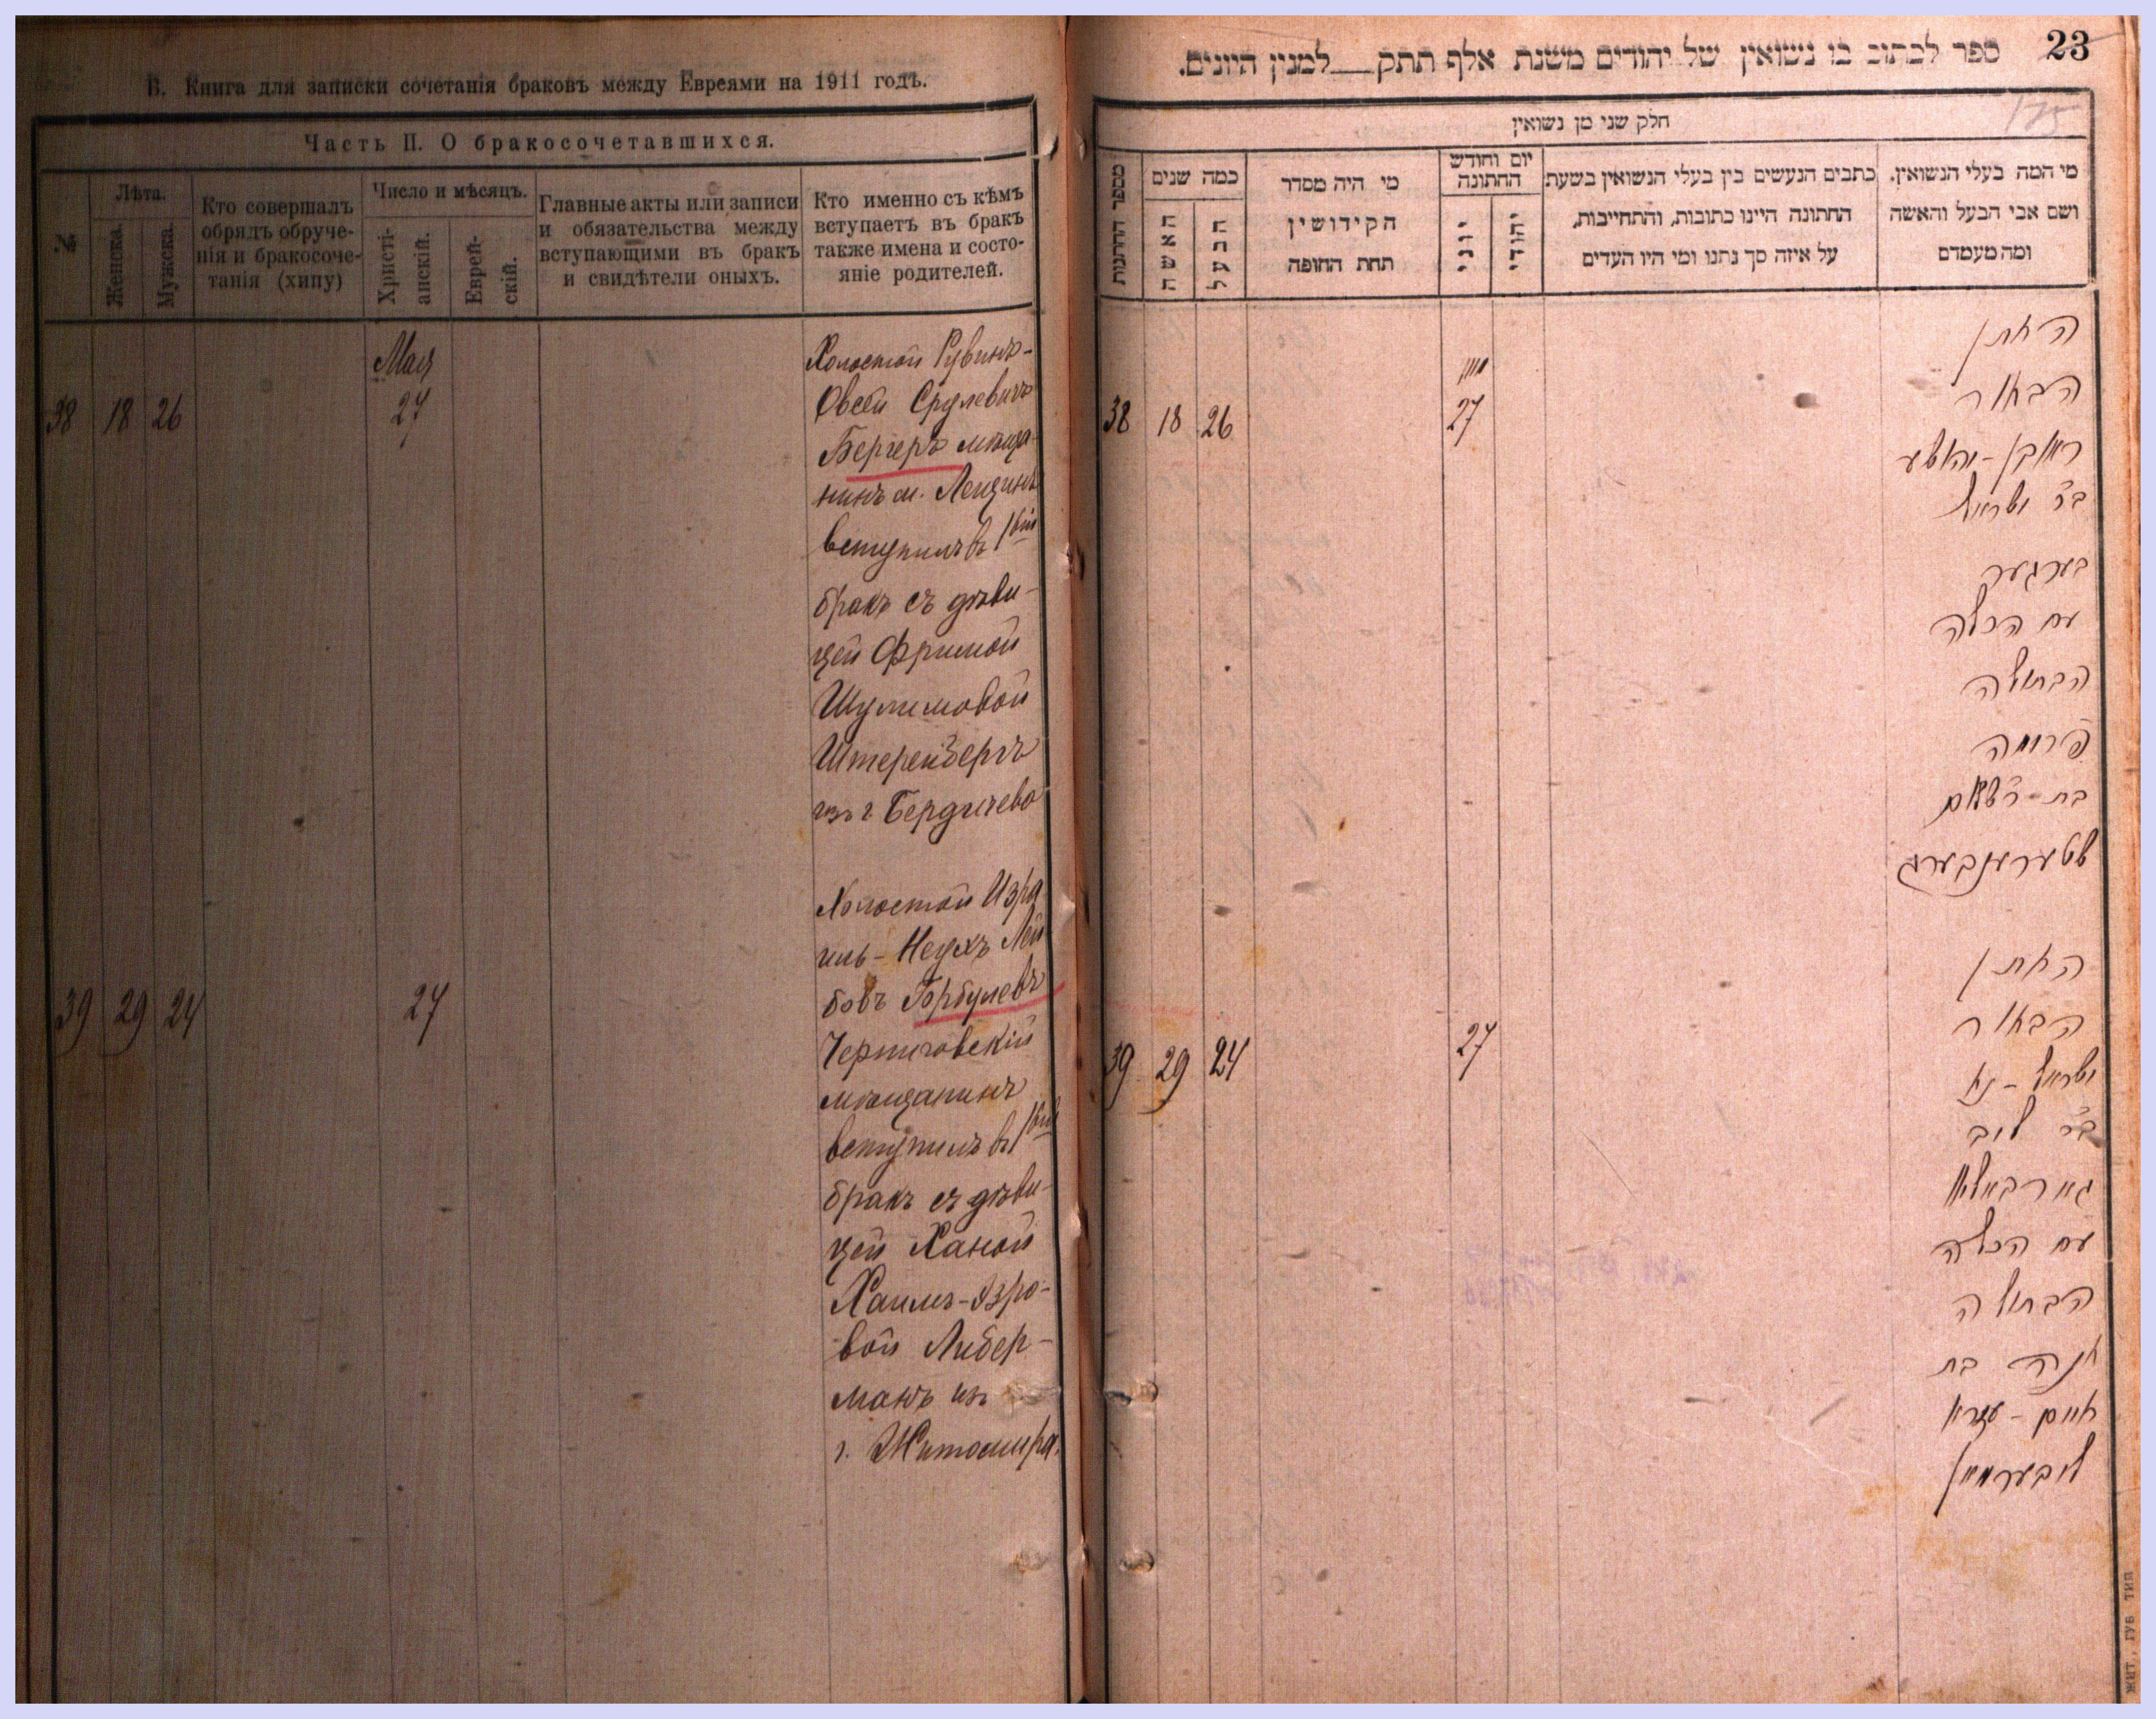 Б. Книга для записки сочетанія браковъ между Евреями на 1911 годъ.
Часть II. О бракосочетавшихся.
№
Лѣта.
Женска.
Мужска.
Кто совершалъ
обрядъ обруче-
нія и бракосоче-
танія (хипу)
Число и мѣсяцъ.
Христі-
анскій.
Еврей-
скій.
Главные акты или записи
и обязательства между
вступающими въ бракъ
и свидѣтели оныхъ.
Кто именно съ кѣмъ
вступаетъ въ бракъ
также имена и состо-
яніе родителей.
Мая
38 18 26 27
Холостой Рувинъ-
Овсей Срулевичъ
Бергеръ мѣща-
нинъ м.
вступилъ въ 1ый
бракъ съ дѣви-
цей Фримой
Шулимовой
Штеренбергъ
изъ г. Бердичева
39 29 24 27
Холостой Изра
иль-Неухъ Лей
бовъ Горбулевъ
Черниговскій
мѣщанинъ
вступилъ въ 1ый
бракъ съ дѣви-
цей Ханой
Хаимъ-Эзро-
вой Либер-
манъ изъ
г. Житомира.
23
ספר לכתוב בו נשואין של יהודים משנת אלף תתק __ למנין היונים.
175
חלק שני מן נשואין
מספר החתונות
כמה שנים
האשה
הבעל
מי היה מסדר
הקידושין
תחת החופה
יום וחודש
החתונה
יוני
יהודי
כתבים הנעשים בין בעלי הנשואין בשעת
החתונה היינו כתובות, והתחייבות,
על איזה סך נתנו ומי היו העדים
מי המה בעלי הנשואין,
ושם אבי הבעל והאשה
ומה מעמדם
38 18 26 27
החתן
הבחור
ראובן-יהושע
בר ישראל
בערגער
עם הכלה
הבתולה
פרומה
בת-ר שלום
שטערענבערג
39 29 24 27
החתן
הבחור
ישראל-נח
בר ליב
עם הכלה
הבתולה
חנה בת
חיים-עזרא
ליבערמאן
ЖИТ., ГУБ ТИП